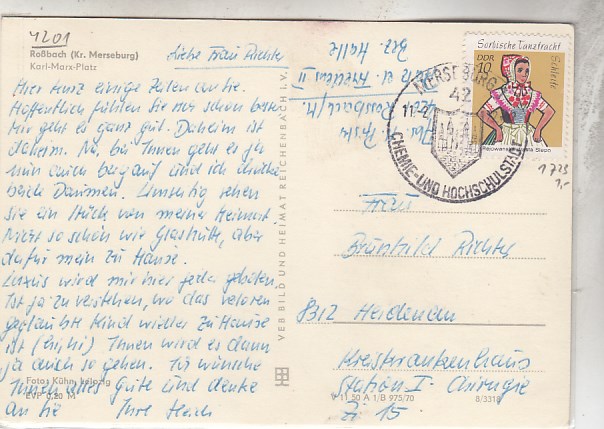 4201
Roßbach (Kr. Merseburg)
Karl-Marx-Platz
Liebe Frau Richter
Hier kurz einige Zeilen an Sie.
Hoffentlich fühlen Sie sich schon besser
Mir geht es ganz gut. Daheim ist
daheim. Na, bei Ihnen geht es ja
nun auch bergauf und ich drücke
beide Daumen. Umseitig sehen
sie ein Stück von meiner Heimat.
Nicht so schön wie Glashütte, aber
dafür mein zu Hause.
Luxus wird mir hier jeder geboten.
Ist ja zu verstehen, wo das verloren
geglaubte Kind wieder zu Hause
ist (hihi) Ihnen wird es dann
ja auch so gehen. Ich wünsche
Ihnen alles Gute und denke
an Sie Ihre
Foto: Kühn, Leipzig
EVP 0,20 M
Roßbach/M
Bez. Halle
VEB BILD UND HEIMAT REICHENBACH I. V.
V 11 50 A 1/B 975/70
8/3318
Sorbische Tanztracht
Schleife
DDR
10
MERSEBURG
42
11.-2
CHEMIE-UND HOCHSCHULSTADT
1723
1,-
Frau
Brünhild Richter
8312 Heidenau
Kreiskrankenhaus
Station I Chirurgie
Zi 15